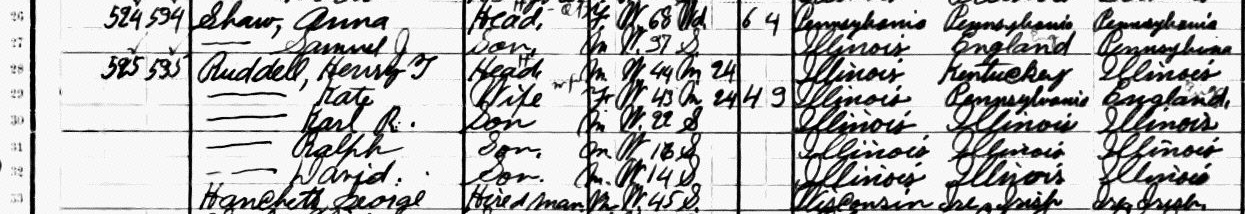 26 524 594 Shaw, Anna Head F W 68 Wd 6 4 Pennsylvania Pennsylvania Pennsylvania
27 — Samuel J Son M W 37 S Illinois England Pennsylvania
28 525 595 Ruddell, Henry T Head M W 44 M 24 Illinois Kentuckey Illinois
29 — Kate Wife F W 43 M 24 4 9 Illinois Pennsylvania England
30 — Karl R. Son M W 22 S Illinois Illinois Illinois
31 — Ralph Son M W S Illinois Illinois Illinois
32 — David Son M W 14 S Illinois Illinois Illinois
33 George Hired man M W 45 S Wisconsin Ire. Irish Ire. Irish